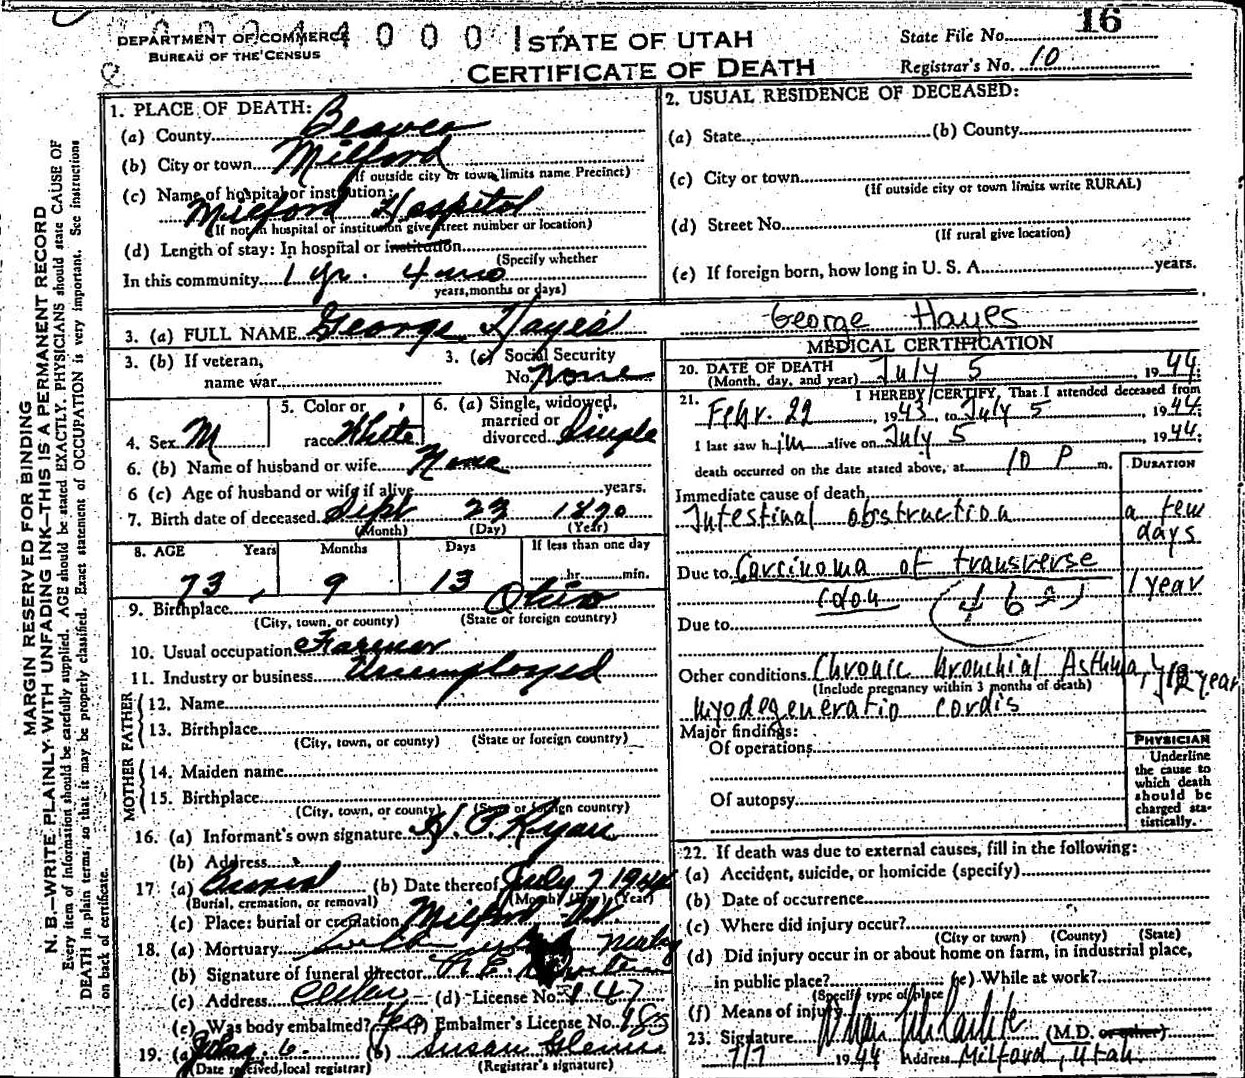 0 0 2 4 4 0 0 0 1
16
DEPARTMENT OF COMMERCE
BUREAU OF THE CENSUS
STATE OF UTAH
CERTIFICATE OF DEATH
State File No.
Registrar's No. 10
MARGIN RESERVED FOR BINDING
N. B.—WRITE PLAINLY WITH UNFADING INK—THIS IS A PERMANENT RECORD
Every item of information should be carefully supplied. AGE should be stated EXACTLY. PHYSICIANS should state CAUSE OF
DEATH in plain terms, so that it may be properly classified. Exact statement of OCCUPATION is very important. See instructions
on back of certificate.
1. PLACE OF DEATH:
(a) County Beaver
(b) City or town Milford
(If outside city or town limits name Precinct)
(c) Name of hospital or institution:
Milford Hospital
(If not in hospital or institution give street number or location)
(d) Length of stay: In hospital or institution
(Specify whether
In this community 1 yr. 4 mo
years, months or days)
2. USUAL RESIDENCE OF DECEASED:
(a) State (b) County
(c) City or town
(If outside city or town limits write RURAL)
(d) Street No.
(If rural give location)
(e) If foreign born, how long in U. S. A. years.
3. (a) FULL NAME George Hayes
George Hayes
3. (b) If veteran,
name war
3. (c) Social Security
No. None
4. Sex M
5. Color or
race White
6. (a) Single, widowed,
married or
divorced Single
6. (b) Name of husband or wife None
6 (c) Age of husband or wife if alive years.
7. Birth date of deceased Sept 23 1870
(Month) (Day) (Year)
8. AGE Years Months Days If less than one day
73 9 13 hr. min.
9. Birthplace Ohio
(City, town, or county) (State or foreign country)
10. Usual occupation Farmer
11. Industry or business Unemployed
FATHER
12. Name
13. Birthplace
(City, town, or county) (State or foreign country)
MOTHER
14. Maiden name
15. Birthplace
(City, town, or county) (State or foreign country)
16. (a) Informant's own signature H. P. Ryan
(b) Address
17 (a) Burial (b) Date thereof July 7 1944
(Burial, cremation, or removal) (Month) (Day) (Year)
(c) Place: burial or cremation Milford Ut.
18. (a) Mortuary
(b) Signature of funeral director
(c) Address Cedar (d) License No. 147
(e) Was body embalmed? Yes (f) Embalmer's License No. 185
19. (a) July 6. (b) Susan
(Date received, local registrar) (Registrar's signature)
MEDICAL CERTIFICATION
20. DATE OF DEATH
(Month, day, and year) July 5, 1944.
21. I HEREBY CERTIFY, That I attended deceased from
Febr. 22 1943, to July 5, 1944.
I last saw him alive on July 5, 1944.
death occurred on the date stated above, at 10 P m.
DURATION
Immediate cause of death
Intestinal obstruction a few
days
Due to Carcinoma of transverse
colon 1 year
Due to
Other conditions Chronic bronchial Asthma, year
(Include pregnancy within 3 months of death)
Myodegeneratio cordis
Major findings:
Of operations
Of autopsy
PHYSICIAN
Underline
the cause to
which death
should be
charged sta-
tistically.
22. If death was due to external causes, fill in the following:
(a) Accident, suicide, or homicide (specify)
(b) Date of occurrence
(c) Where did injury occur?
(City or town) (County) (State)
(d) Did injury occur in or about home on farm, in industrial place,
in public place? (e) While at work?
(Specify type of place
(f) Means of injury
23. Signature (M.D. or other)
7/7 1944 Address Milford, Utah